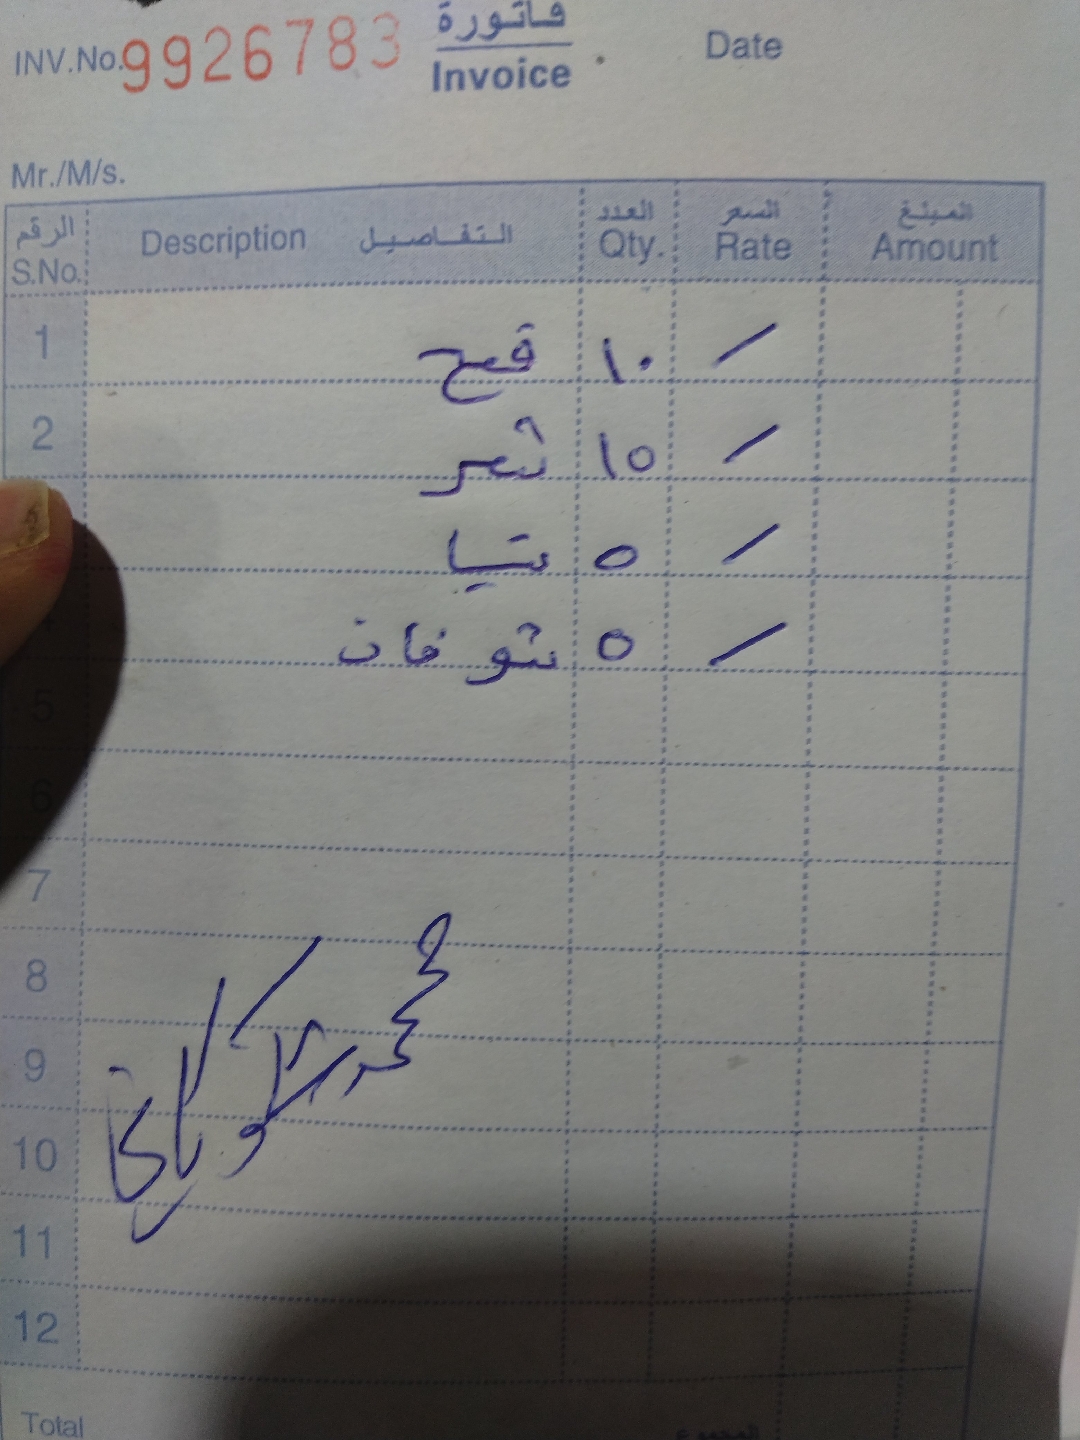 INV.No. 9926783 فاتورة Date
Invoice
Mr./M/s.
الرقم التفاصيل العدد السعر المبلغ
S.No. Description Qty. Rate Amount
1 قمح ١٠ /
2 شعر ١٥ /
ستيا ٥ /
شوفان ٥ /
5
6
7
8
9
10
11
12
Total المجموع